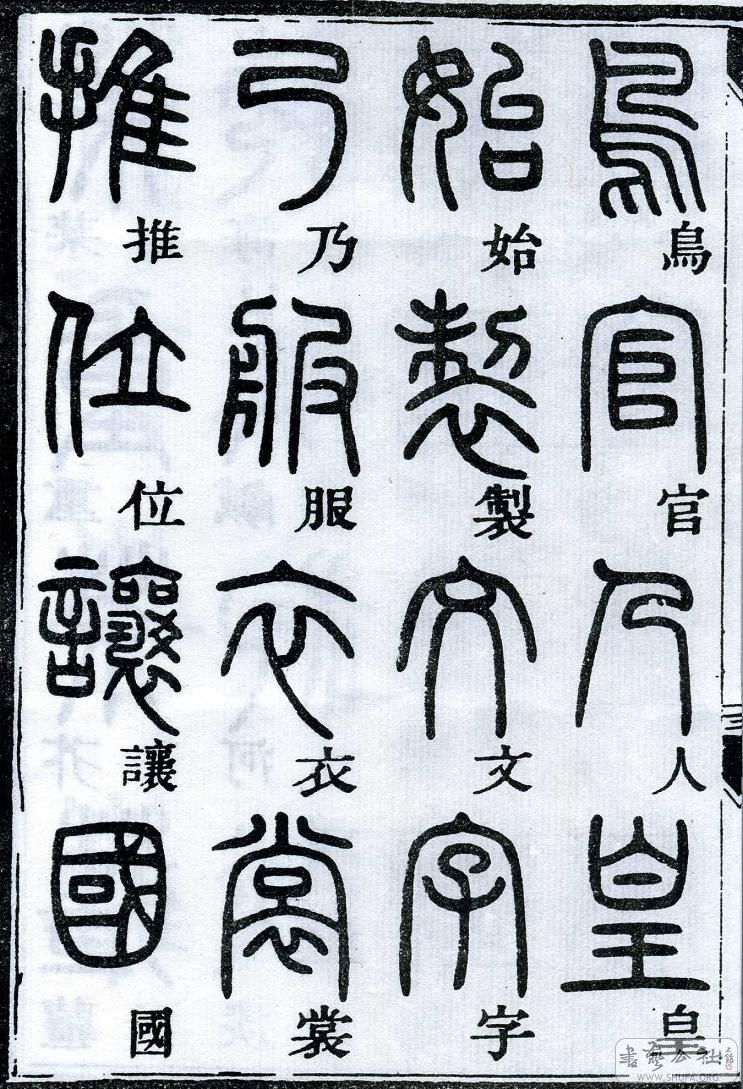 鳥官人皇
始製文字
乃服衣裳
推位讓國
書藝公社
WWW.SHUFA.ORG